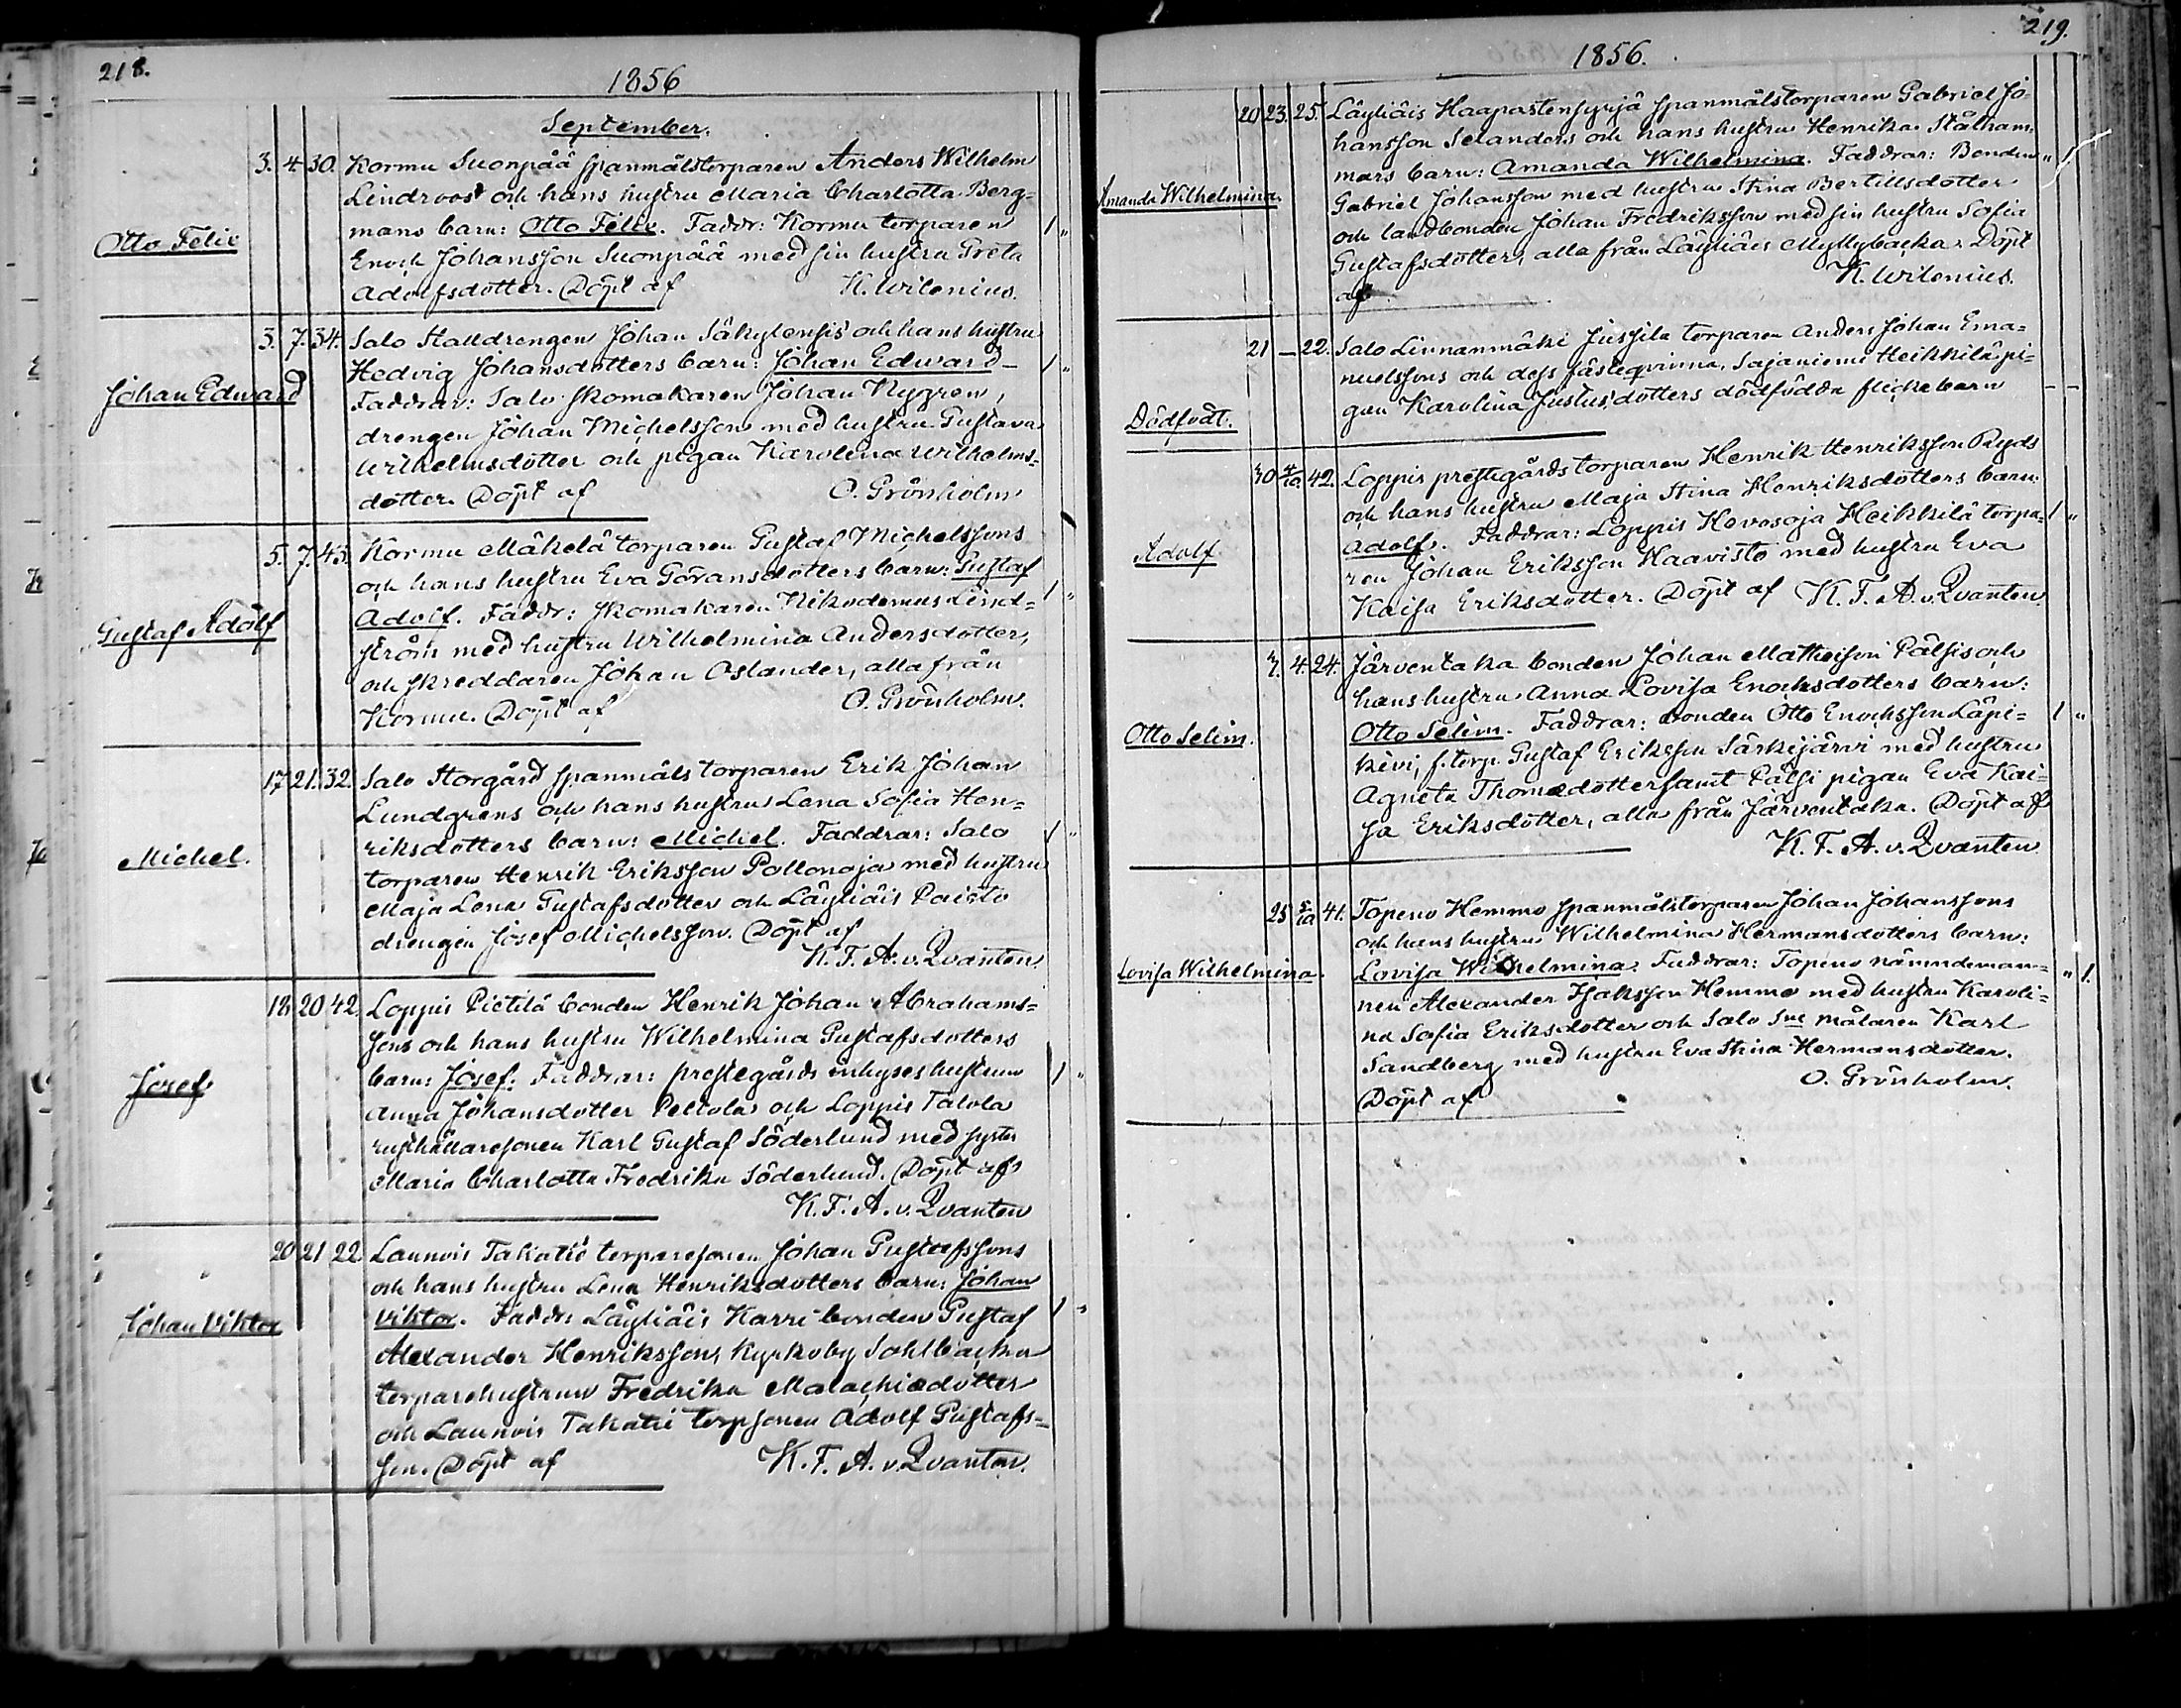 218.
1856
September.
3. 4. 30. Kormu Suonpää spanmålstorparen Anders Wilhelm
Lindroos och hans hustru Maria Charlotta Berg=
mans barn: Otto Felix. Faddr: Kormu torparen 1 "
Otto Felix
Enoch Johansson Suonpää med sin hustru Greta
Adolfsdotter. Döpt af K. Wilenius.
3. 7. 34. Salo Stalldrengen Johan Säkylensis och hans hustru
Hedvig Johansdotters barn: Johan Edward - 1 "
Johan Edward
Faddrar: Salo skomakaren Johan Nygren,
drengen Johan Michelsson med hustru Gustava
Wilhelmsdotter och pigan Karolina Wilhelms=
dotter. Döpt af O. Grönholm
5. 7. 43. Kormu Mäkelä torparen Gustaf Michelssons
och hans hustru Eva Göransdotters barn: Gustaf
Adolf. Faddr: skomakaren Nikodemus Lind= 1 "
Gustaf Adolf
ström med hustru Wilhelmina Andersdotter,
och skreddaren Johan Oslander, alla från
Kormu. Döpt af O. Grönholm.
17 21. 32. Salo Storgård spanmåls torparen Erik Johan
Lundgrens och hans hustru Lena Sofia Hen=
riksdotters barn: Michel. Faddrar: Salo 1 "
Michel.
torparen Henrik Eriksson Pollonoja med hustru
Maja Lena Gustafsdotter och Läyliäis Paisto
drengen Josef Michelsson. Döpt af
K. F. A. v. Qvanten.
18 20 42 Loppis Pietilä bonden Henrik Johan Abrahams=
sons och hans hustru Wilhelmina Gustafsdotters
barn: Josef. Faddrar: prestegårds inhyses hustrun 1 "
Josef
Anna Johansdotter Peltola och Loppis Talola
rusthållaresonen Karl Gustaf Söderlund med syster
Maria Charlotta Fredrika Söderlund. Döpt af
K. F. A. v. Qvanten
20 21 22 Launois Takatie torparesonen Johan Gustafssons
och hans hustru Lena Henriksdotters barn: Johan
Viktor. Faddr: Läyliäis Karri bonden Gustaf 1 "
Johan Viktor
Alexander Henriksson, Kyrkoby Sahlbacka
torparehustrun Fredrika Malachiædotter
och Launois Takatie torpsonen Adolf Gustafs=
son. Döpt af K. F. A. v. Qvanten.
219.
1856.
20 23. 25. Läyliäis Haapastensyrjä spanmålstorparen Gabriel Jo=
hansson Selanders och hans hustru Henrika Stålham=
mars barn: Amanda Wilhelmina. Faddrar: Bonden " 1
Amanda Wilhelmina.
Gabriel Johansson med hustru Stina Bertillsdotter
och landbonden Johan Fredriksson med sin hustru Sofia
Gustafsdotter, alla från Läyliäis Myllybacka. Döpt
af K. Wilenius.
21 - 22. Salo Linnanmäki Jussila torparen Anders Johan Ema=
nuelssons och dess fästeqvinna, Sajaniemi Heikkilä pi=
gan Karolina Justusdotters dödfödda flickebarn - -
Dödfödt.
30 4/10 42. Loppis prestegårds torparen Henrik Henriksson
och hans hustru Maja Stina Henriksdotters barn:
Adolf. Faddrar: Loppis Hevosoja Heikkilä torpa= 1 "
Adolf.
ren Johan Eriksson Haavisto med hustru Eva
Kaisa Eriksdotter. Döpt af K. F. A. v. Qvanten.
4. 24. Järventaka bonden Johan Matheison Pälsis och
hans hustru Anna Lovisa Enochsdotters barn:
Otto Selim. Faddrar: bonden Otto Enochsson Läpi= 1 "
Otto Selim.
kivi, f. torp. Gustaf Eriksson Särkijärvi med hustru
Agneta Thomædotter samt Pälsi pigan Eva Kai=
sa Eriksdotter, alla från Järventaka. Döpt af
K. F. A. v. Qvanten
25 5/10 41. Topeno Hemmo spanmålstorparen Johan Johanssons
och hans hustru Wilhelmina Hermansdotters barn:
Lovisa Wilhelmina. Faddrar: Topeno nämndeman= " 1.
Lovisa Wilhelmina.
nen Alexander Isaksson Hemmo med hustru Karoli=
na Sofia Eriksdotter och Salo målaren Karl
Sandberg med hustru Eva Stina Hermansdotter.
Döpt af O. Grönholm.